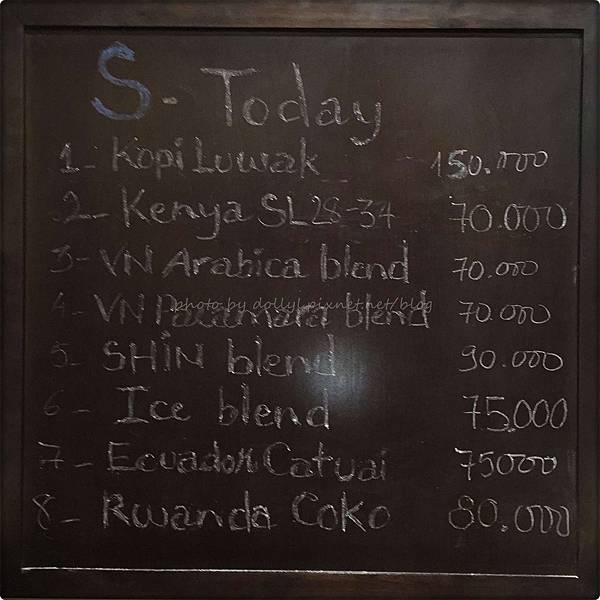 S - Today
1 - Kopi Luwak 150.000
2 - Kenya SL28-34 70.000
3 - VN Arabica blend 70.000
4 - VN Pacamara blend 70.000
photo by dollyl.pixnet.net/blog
5 - SHIN blend 90.000
6 - Ice blend 75.000
7 - Ecuador Catuai 75000
8 - Rwanda Coko 80.000